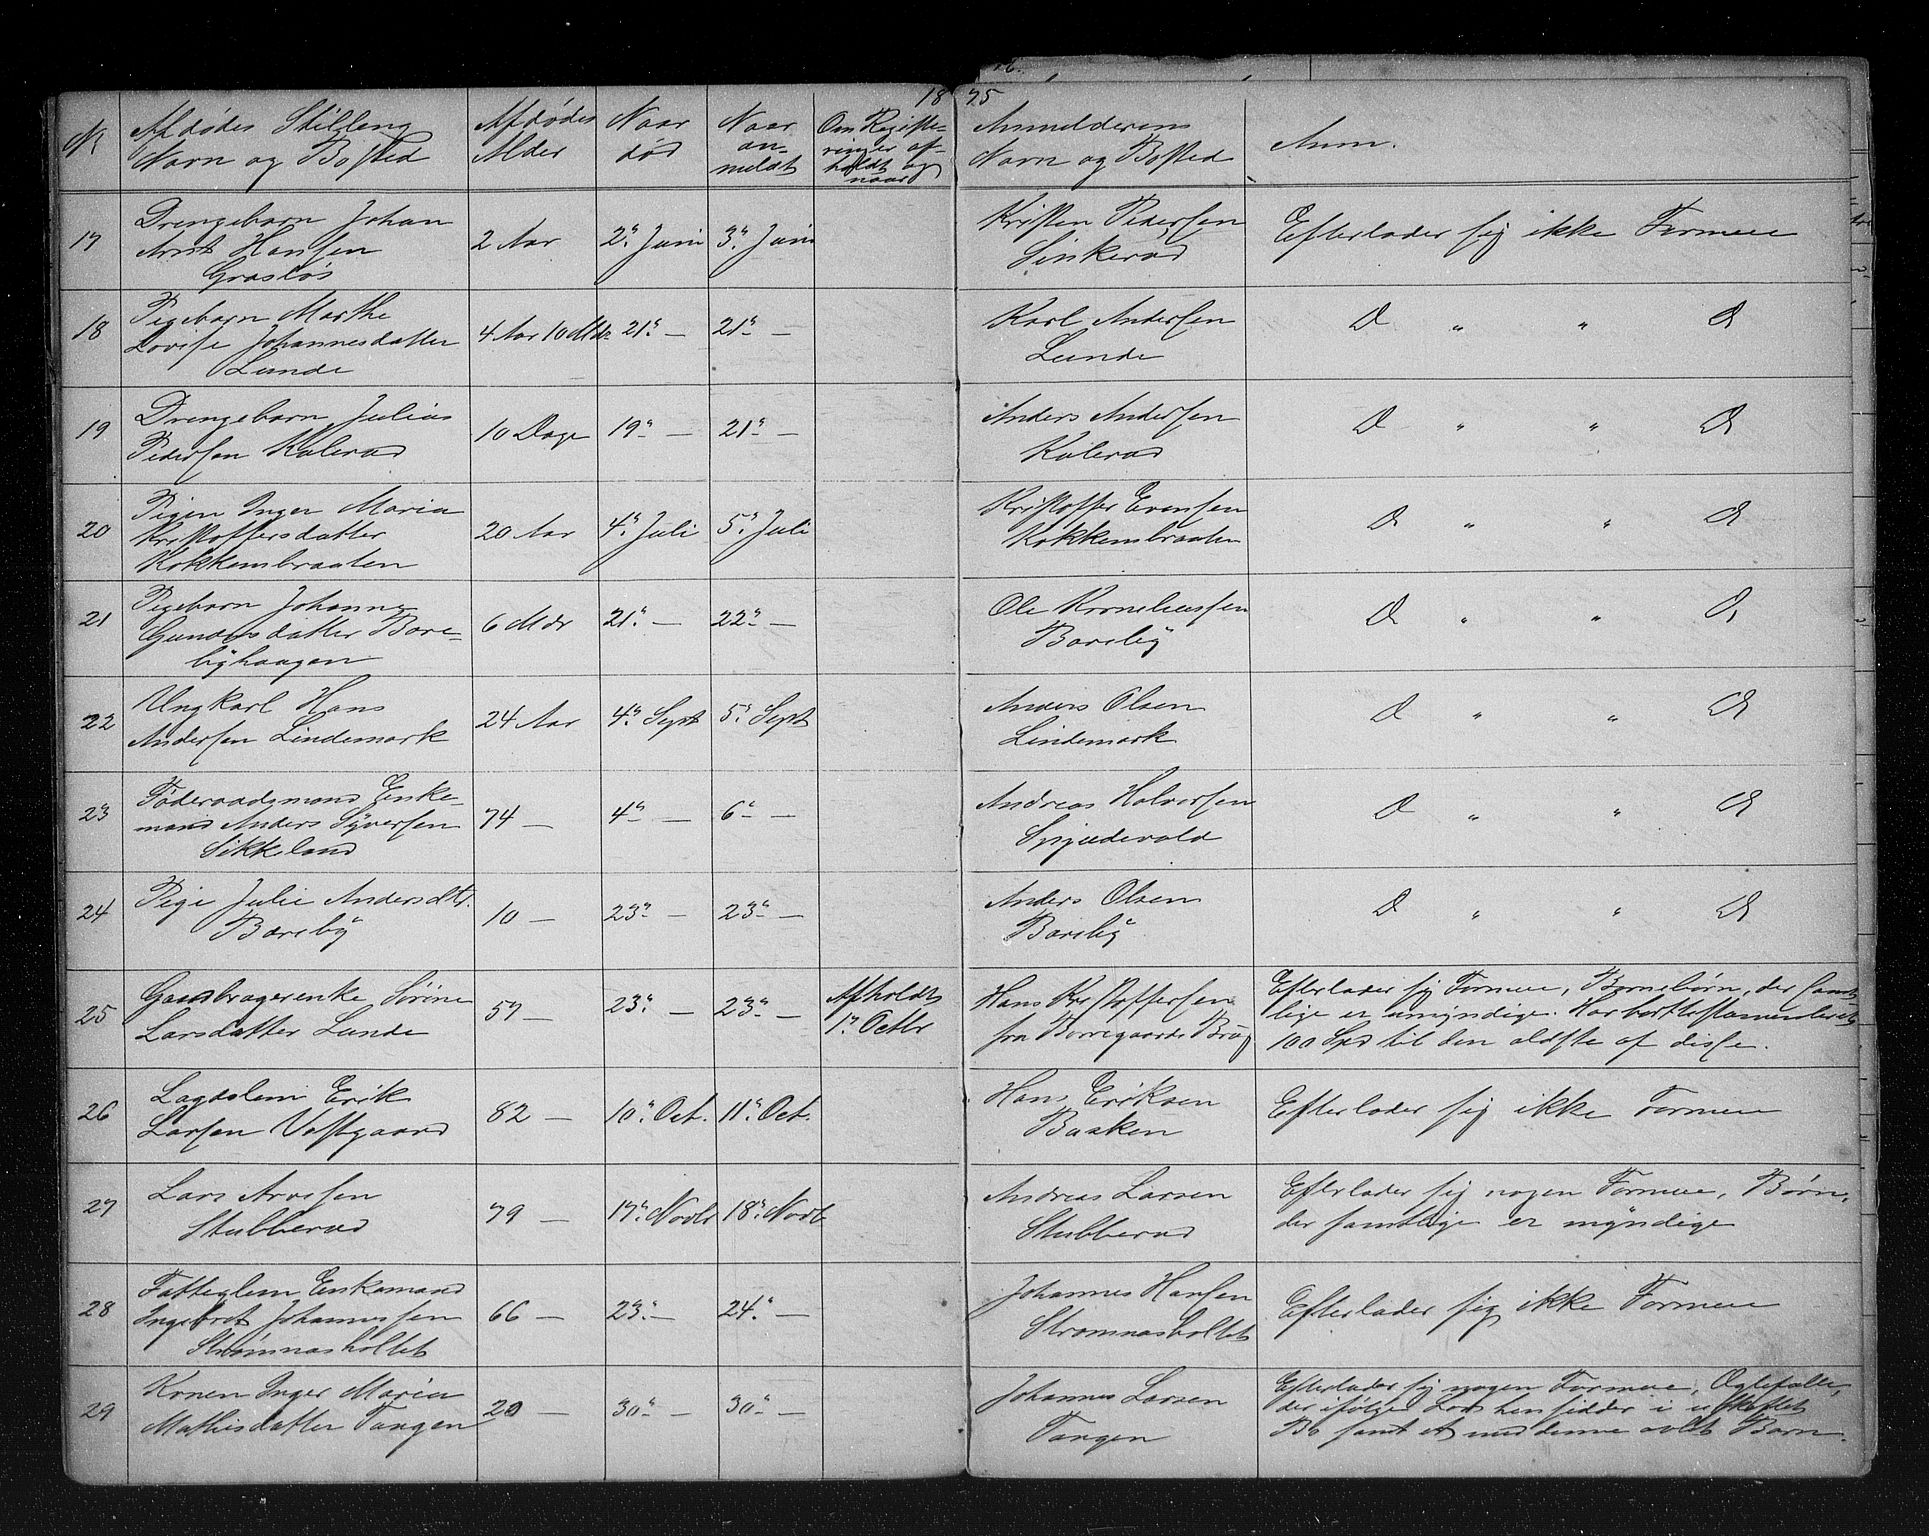 1875
№
Afdødes Stilling
Navn og Bosted
Afdødes
Alder
Naar
død
Naar
an-
meldt
Om Registe-
ringer af-
holdt og
naar
Anmelderens
Navn og Bosted
Anm.
17
Drengebarn Johan
Arnt Hansen
Graslos
2 Aar
2n Juni
3n Juni
Kristen Pedersen
Sinkerød
Efterlader sig ikke Formue
18
Pigebarn Marthe
Lovise Johannesdatter
Lunde
4 Aar 10 Mdr
21n —
21n —
Karl Andersen
Lunde
D " " O
19
Drengebarn Julius
Pedersen Kolerød
10 Dage
19n —
21n —
Anders Andersen
Kolerød
D " " O
20
Pigen Inger Maria
Kristoffersdatter
Kokkensbraaten
20 Aar
4n Juli
5n Juli
Kristoffer Evensen
Kokkensbraaten
D " " O
21
Pigebarn Johanne
Gundersdatter Bare-
byhaagen
6 Mdr
21n —
22n —
Ole Korneliussen
Bareby
D " " O
22
Ungkarl Hans
Andersen Lindemark
24 Aar
4n Sept
5n Sept
Anders Olsen
Lindemark
D " " O
23
Føderaadsmand Enke-
mand Anders Syversen
Sikkeland
74 —
4n —
6n —
Andreas Halvorsen
Spydevold
D " " O
24
Pige Julie Andersdtr.
Bareby
10 —
23n —
23n —
Anders Olsen
Bareby
D " " O
25
Gaardbrugerenke Sørine
Larsdatter Lunde
57 —
23n —
23n —
Afholdt
1n Octbr
Hans Kristoffersen
fra Borregaards Brug
Efterlader sig Formue, Børnebørn, der samt-
lige er umyndige. Har borttestamenteret
100 Spd til den ældste af disse.
26
Lægdslem Erik
Larsen Vestgaard
82 —
10n Oct.
11n Oct.
Hans Eriksen
Bakken
Efterlader sig ikke Formue
27
Lars Arvesen
Stubberød
79 —
17n Novbr
18n Novb
Andreas Larsen
Stubberød
Efterlader sig nogen Formue, Børn,
der samtlige er myndige
28
Fattiglem Enkemand
Ingebret Johannessen
Strømnæsholtet
66 —
23n —
24n —
Johannes Hansen
Strømnæsholtet
Efterlader sig ikke Formue
29
Konen Inger Maria
Mathisdatter Tangen
20 —
30n —
30n —
Johannes Larsen
Tangen
Efterlader sig nogen Formue, Ægtefælle,
der ifølge Lov hensidder i uskiftet
Bo samt et med denne avlet Barn.